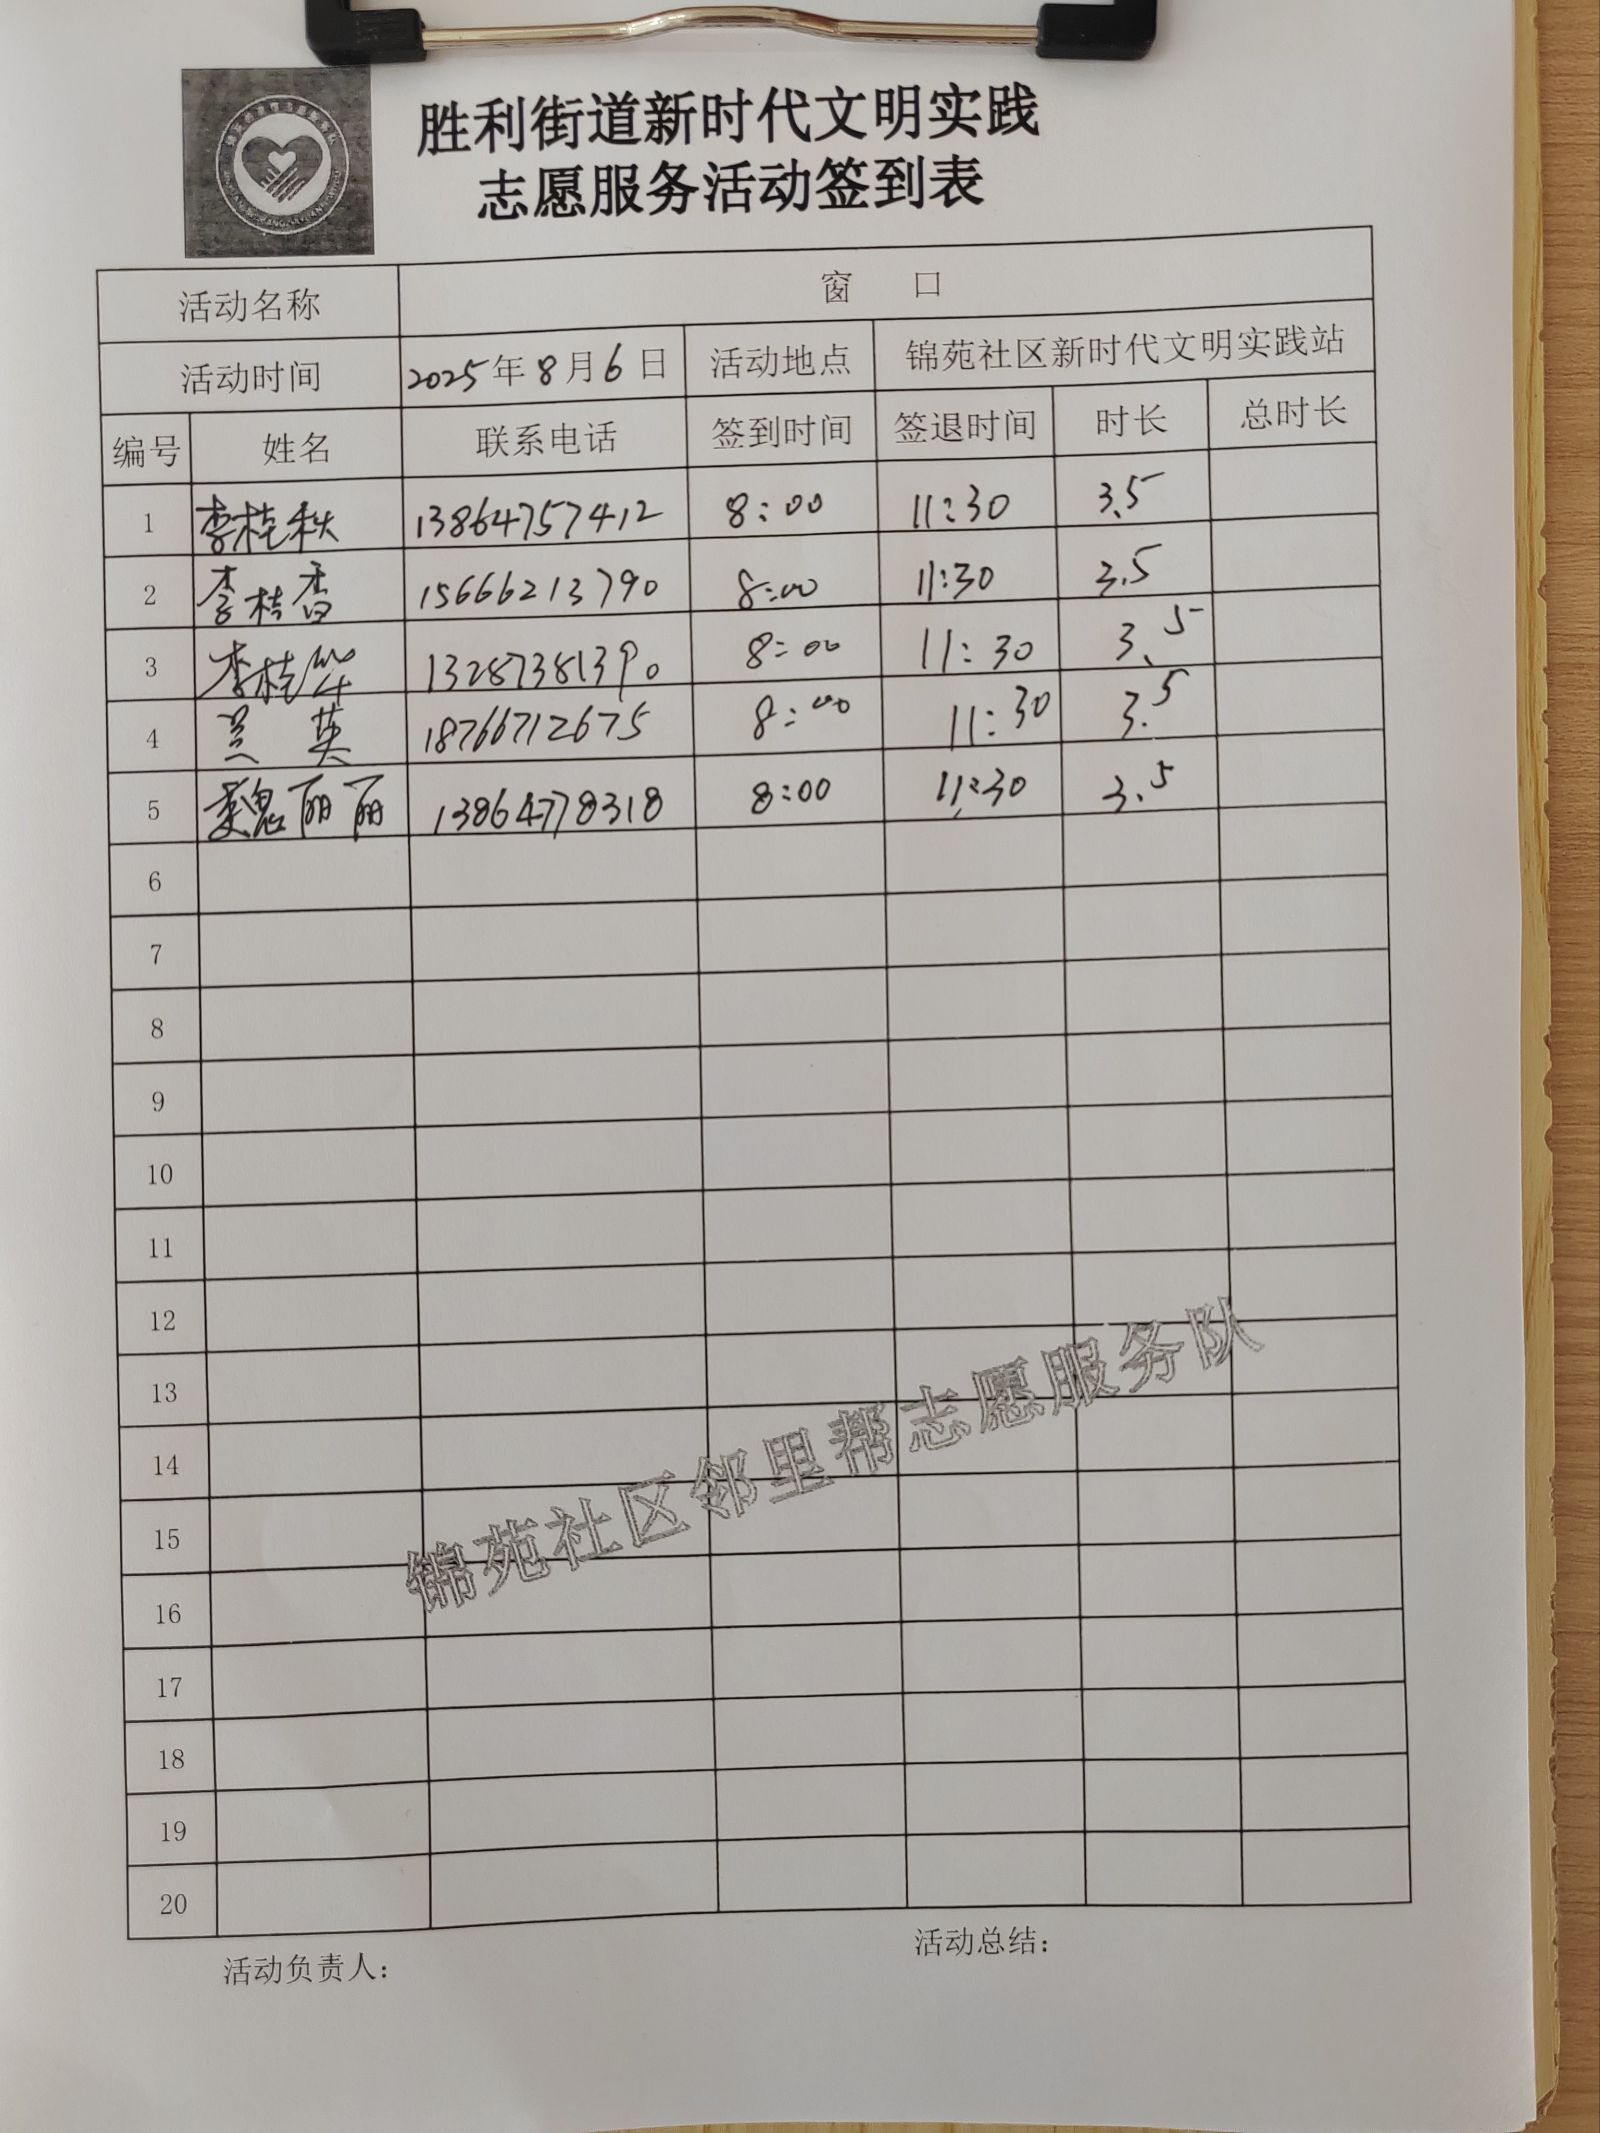 胜利街道新时代文明实践
志愿服务活动签到表
活动名称 窗 口
活动时间 2025年8月6日 活动地点 锦苑社区新时代文明实践站
编号 姓名 联系电话 签到时间 签退时间 时长 总时长
1 李桂秋 13864757412 8:00 11:30 3.5
2 李桂香 15666213790 8:00 11:30 3.5
3 李桂华 13287381390 8:00 11:30 3.5
4 兰英 18766712675 8:00 11:30 3.5
5 魏丽丽 13864778318 8:00 11:30 3.5
6
7
8
9
10
11
12
13
14
15
16
17
18
19
20
锦苑社区邻里帮志愿服务队
活动负责人： 活动总结：